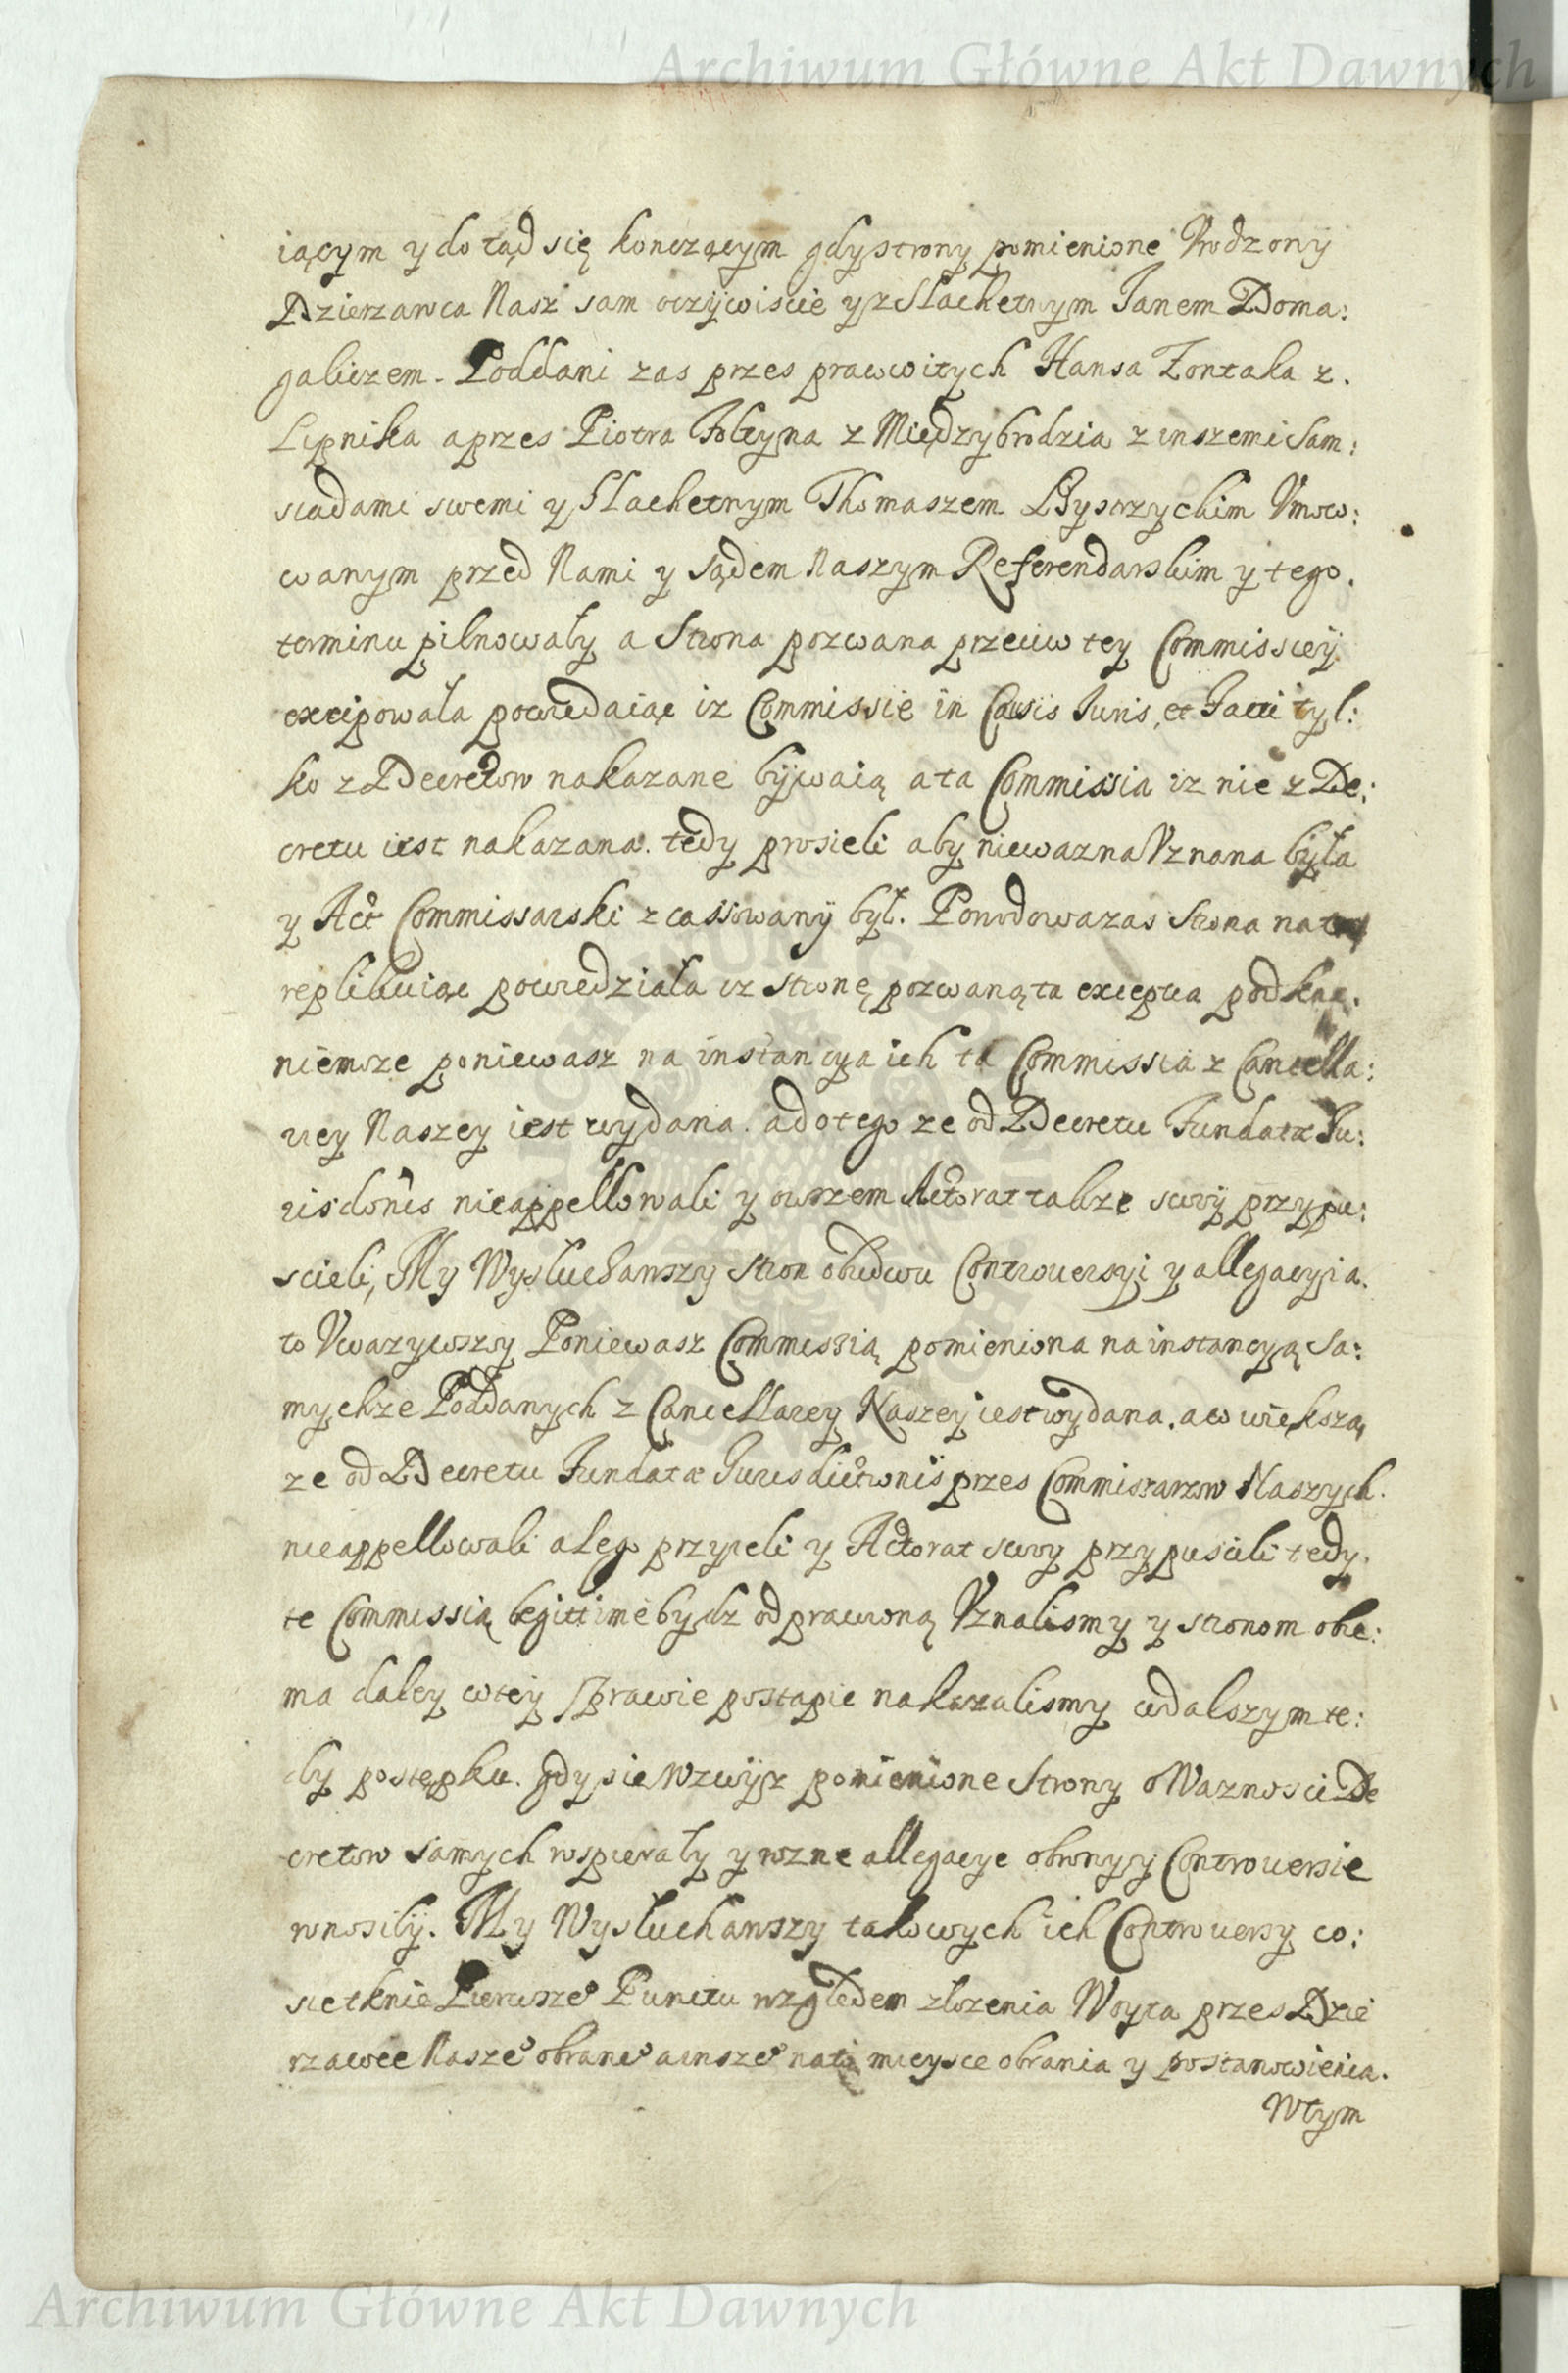 Archiwum Główne Akt Dawnych
iącym y do tąd się konczącym gdy strony pomienione Vrodzony
Dzierzawca Nasz sam oczÿwiscie y z Slachetnym Janem Doma:
galiczem. Poddani zas przes prawowitych Hansa Zontaka z.
Lipnika a przes Piotra z Międzybrodzia z inszemi Sam:
siadami swemi y Slachetnym Thomaszem Bystrzyckim Vmoco:
wanym przed Nami y Sądem Naszym Referendarskim y tego.
terminu pilnowały a Strona pozwana przeciw tey Commissieÿ
excipowała powiedaiąc iz Commissie in Causis Iuris, et Facti tyl:
ko z Decretow nakazane bÿwaią a ta Commissia iz nie z De:
cretu iest nakazana. tedy prosieli aby niewazna Vznana była
y Act Commissarski z cassowanÿ był. Powodowa zas Strona na to
replikuiąc powiedziała iz Stronę pozwaną ta exceptia podkac.
niemoze poniewasz na instancya ich ta Commissia z Cancella:
riey Naszey iest wydana. a do tego ze od Decretu Fundatæ Iu:
risdonis nieappellowali y owszem Actorat takze swoÿ przypu:
scieli, My Wysłuchawszy Stron obudwu Controuersyi y allegacyia.
to Vwazywszy Poniewasz Commissią pomieniona na instancyą Sa:
mychze Poddanych z Cancellariey Naszey iest wydana. a co większa,
ze od Decretu Fundatæ Iurisdictionis przes Commissarzow Naszych.
nieappellowali ale go przyieli y Actorat swoy przypuscili tedy.
te Commissią legittimè bydz odprawioną Vznalismy y stronom obie:
ma daley w tey Sprawie postąpic nakazalismy w dalszym te:
dy postępku. gdy sie wzwÿsz pomienione Strony o Waznosci De
cretow samych wspierały y rozne allegacye obrony y Controuersie
wnosilÿ. My Wysłuchawszy takowych ich Controuersy co:
sie tknie Pierwsze° Punctu względem złozenia Woyta przes Dzie
rzawce Nasze° obrane° a insze° na to mieysce obrania y postanowienia.
Wtym
Archiwum Główne Akt Dawnych